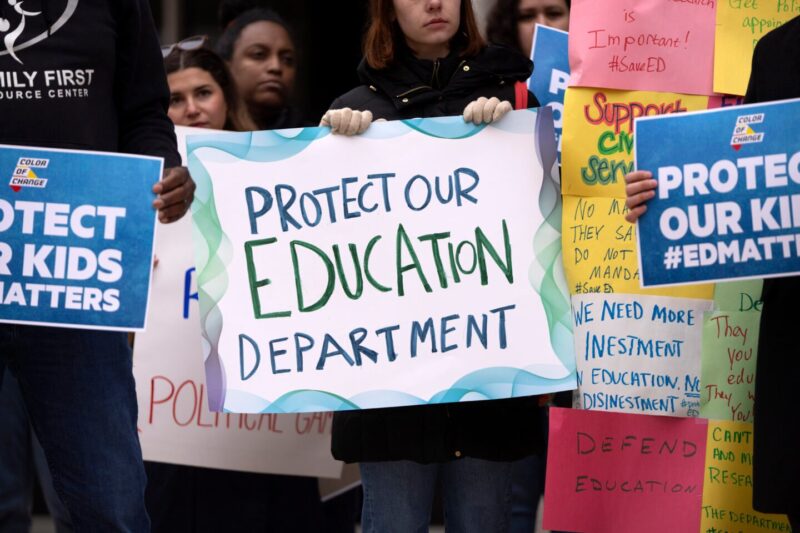 MILY FIRST
OURCE CENTER
COLOR
OF
CHANGE
OTECT
R KIDS
MATTERS
PROTECT OUR
EDUCATION
DEPARTMENT
POLITICAL GAM
is
Important!
#SaveED
Support
Civ
Serv
NO MA
THEY SA
DO NOT
MANDA
#SaveED
WE NEED MORE
INESTMENT
N EDUCATION. NO
DISINVESTMENT
DEFEND
EDUCATION
They
you
edu
They w
you
CAN'T
AND M
RESEA
THE DEPARTME
COLOR
OF
CHANGE
PROTEC
OUR KI
#EDMATTE